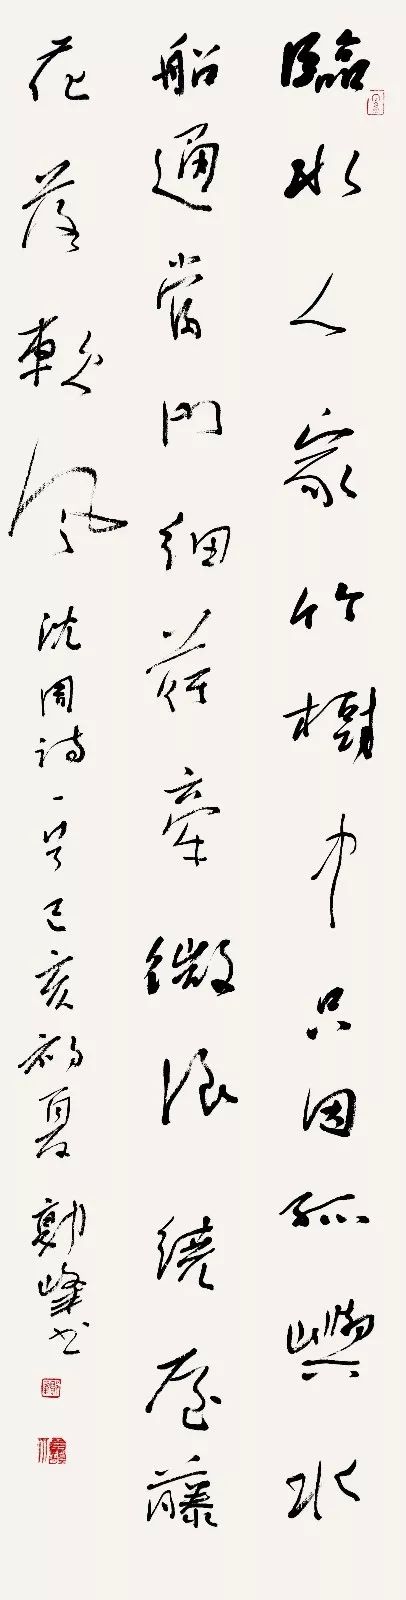 臨水人家竹樹中只因孤嶼水
船通當門細荇牽微浪繞屋藤
花落軟風
沈周詩一首己亥初夏勳峰书